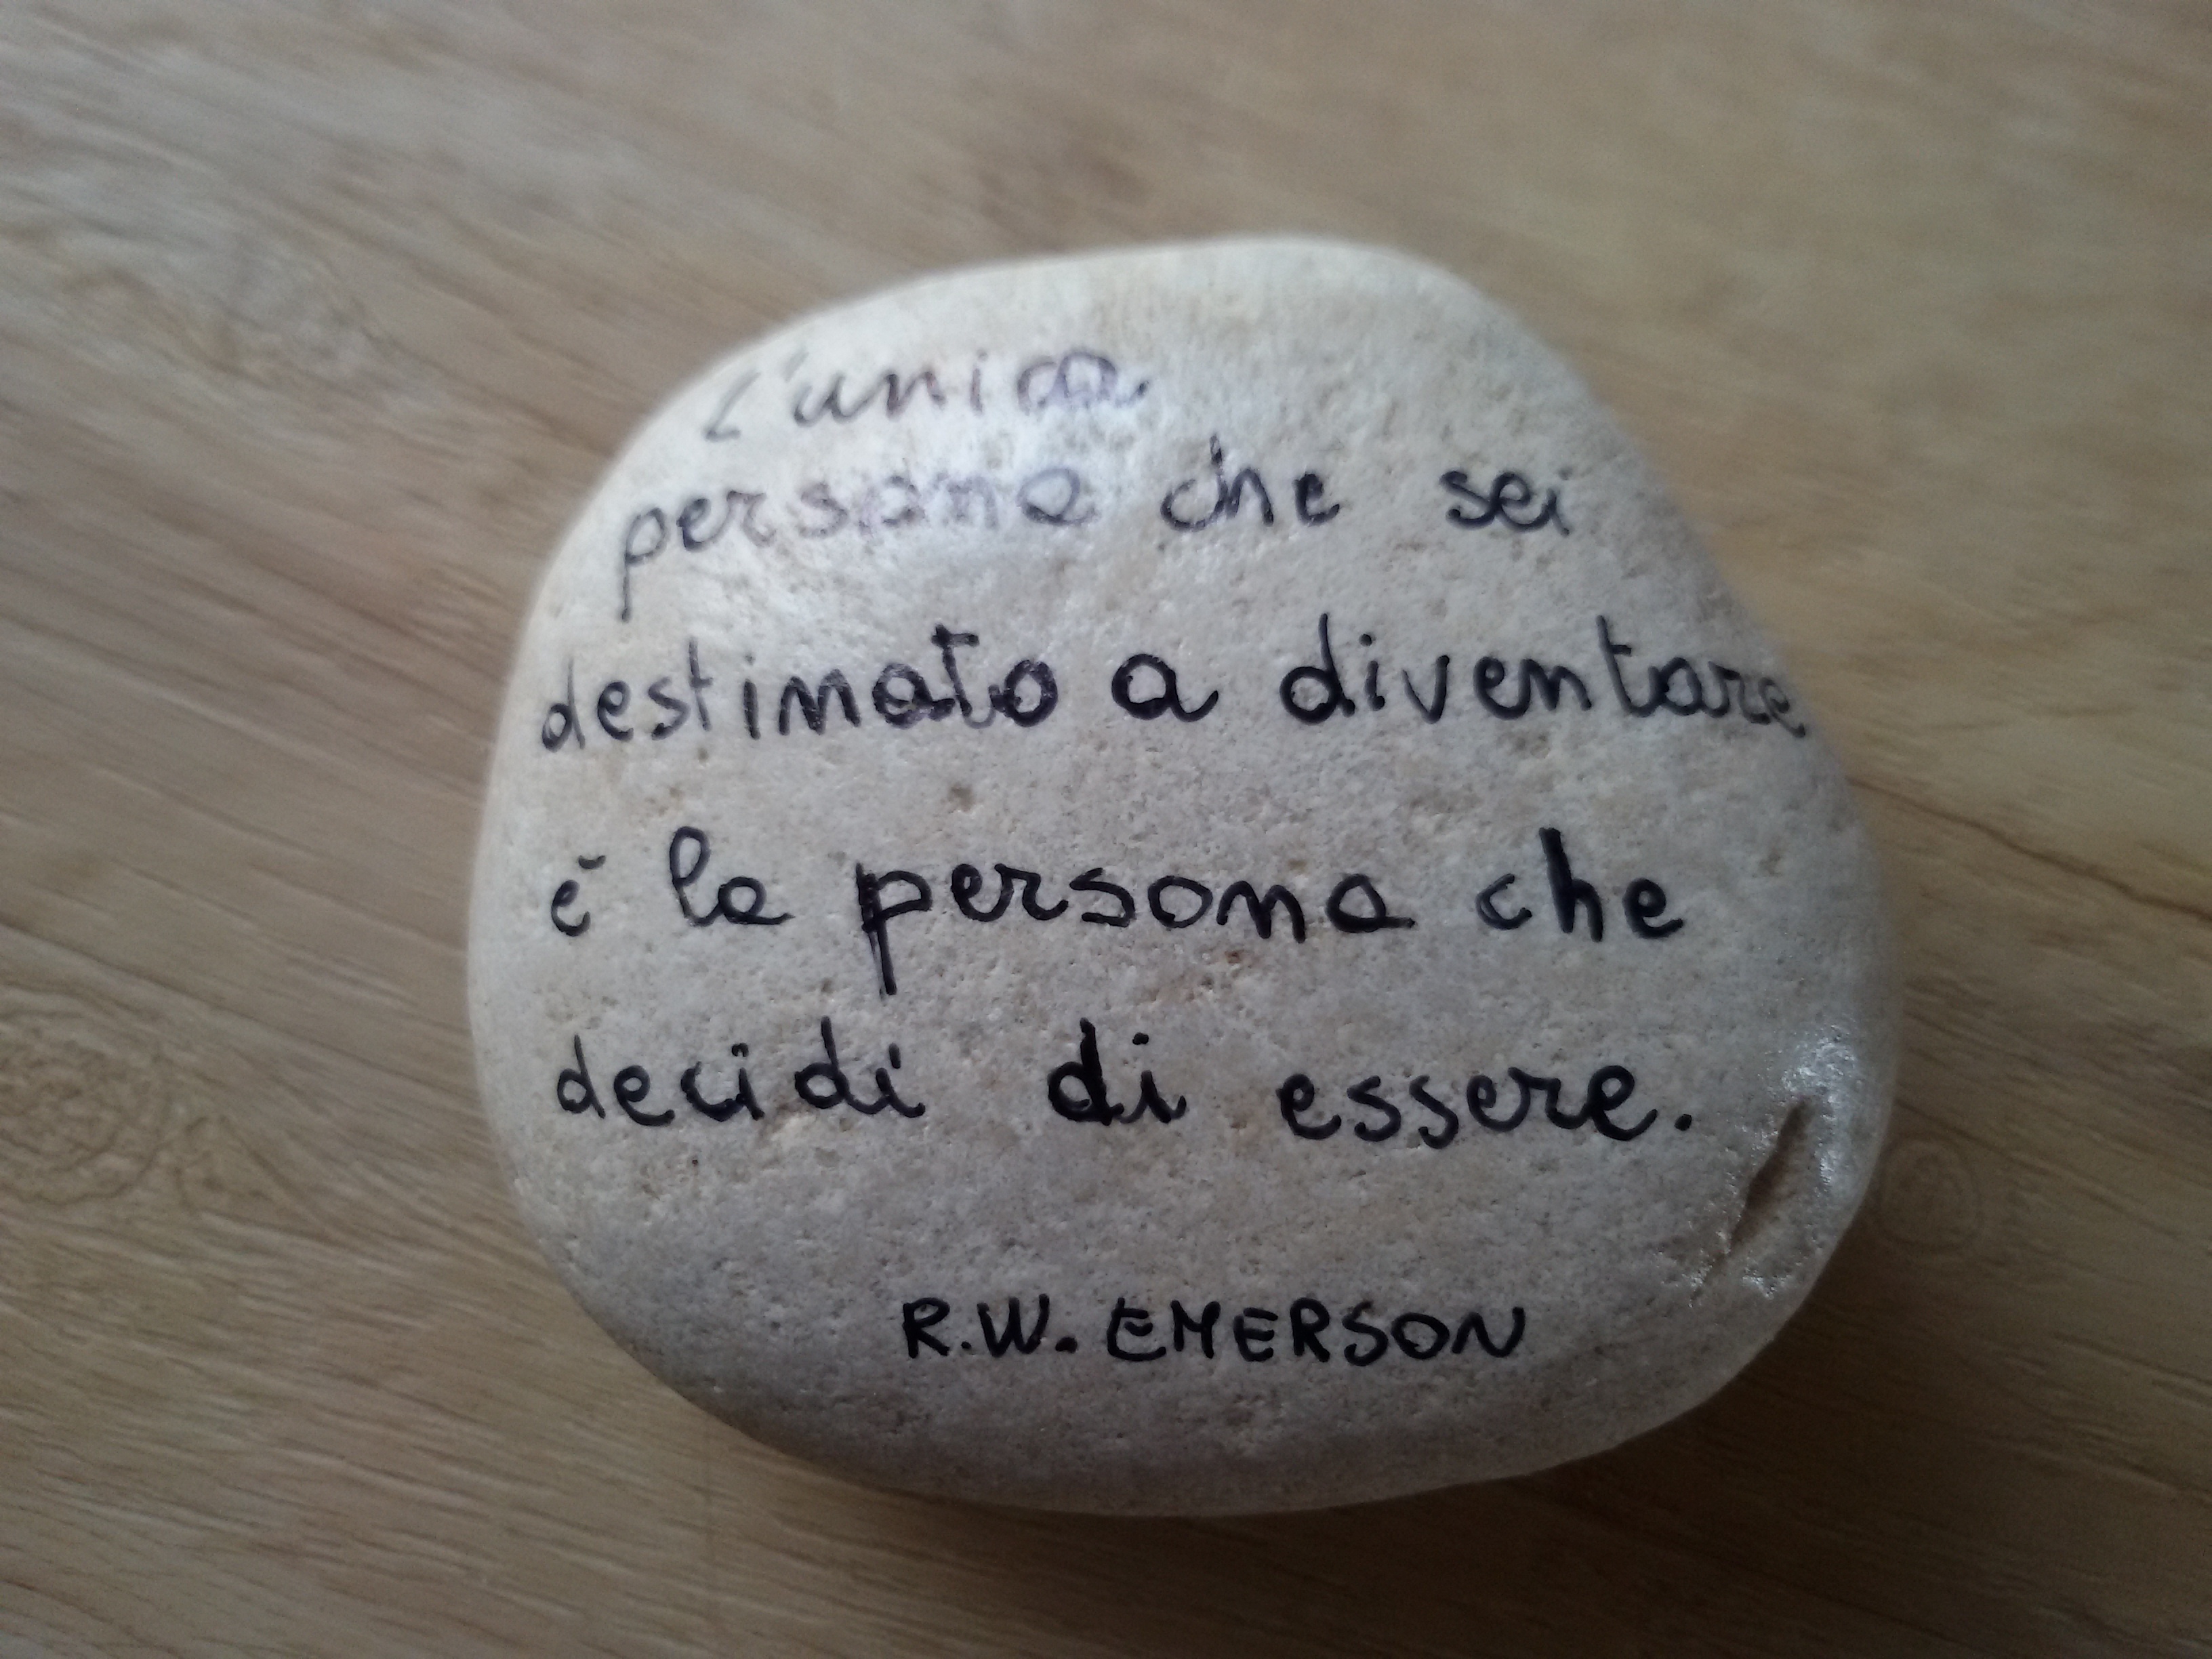 L'unica
persona che sei
destinato a diventare
è la persona che
decidi di essere.
R.W. EMERSON